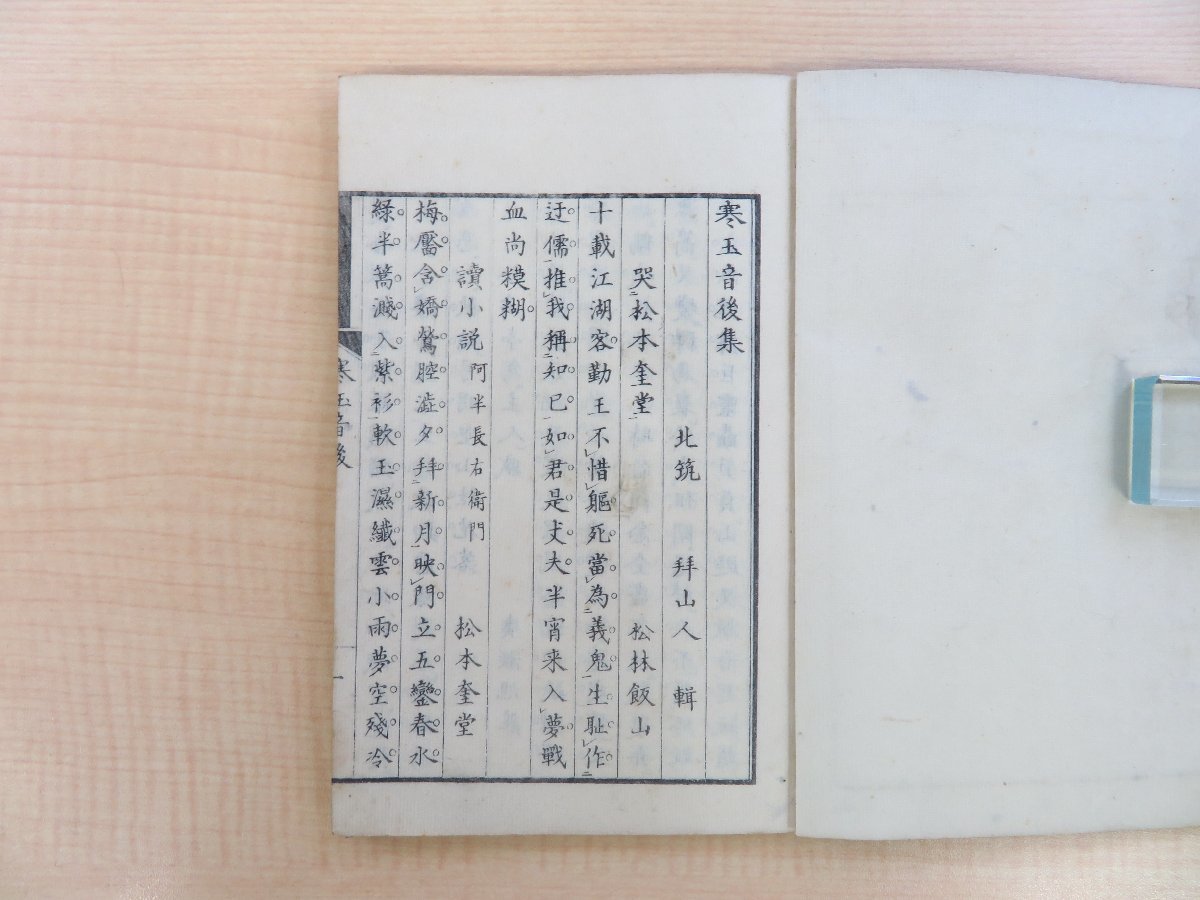 寒玉音後集
北筑 拜山人 輯
哭松本奎堂 松林飯山
十載江湖客勤王不惜軀死當為義鬼生耻作
迂儒推我稱知已如君是丈夫半宵来入夢戰
血尚糢糊
讀小説 阿半長右衛門 松本奎堂
梅靨含嬌鶯腔澁夕拜新月映門立五鑾春水
綠半篙濺入紫衫軟玉濕纖雲小雨夢空殘冷
寒玉音後 一